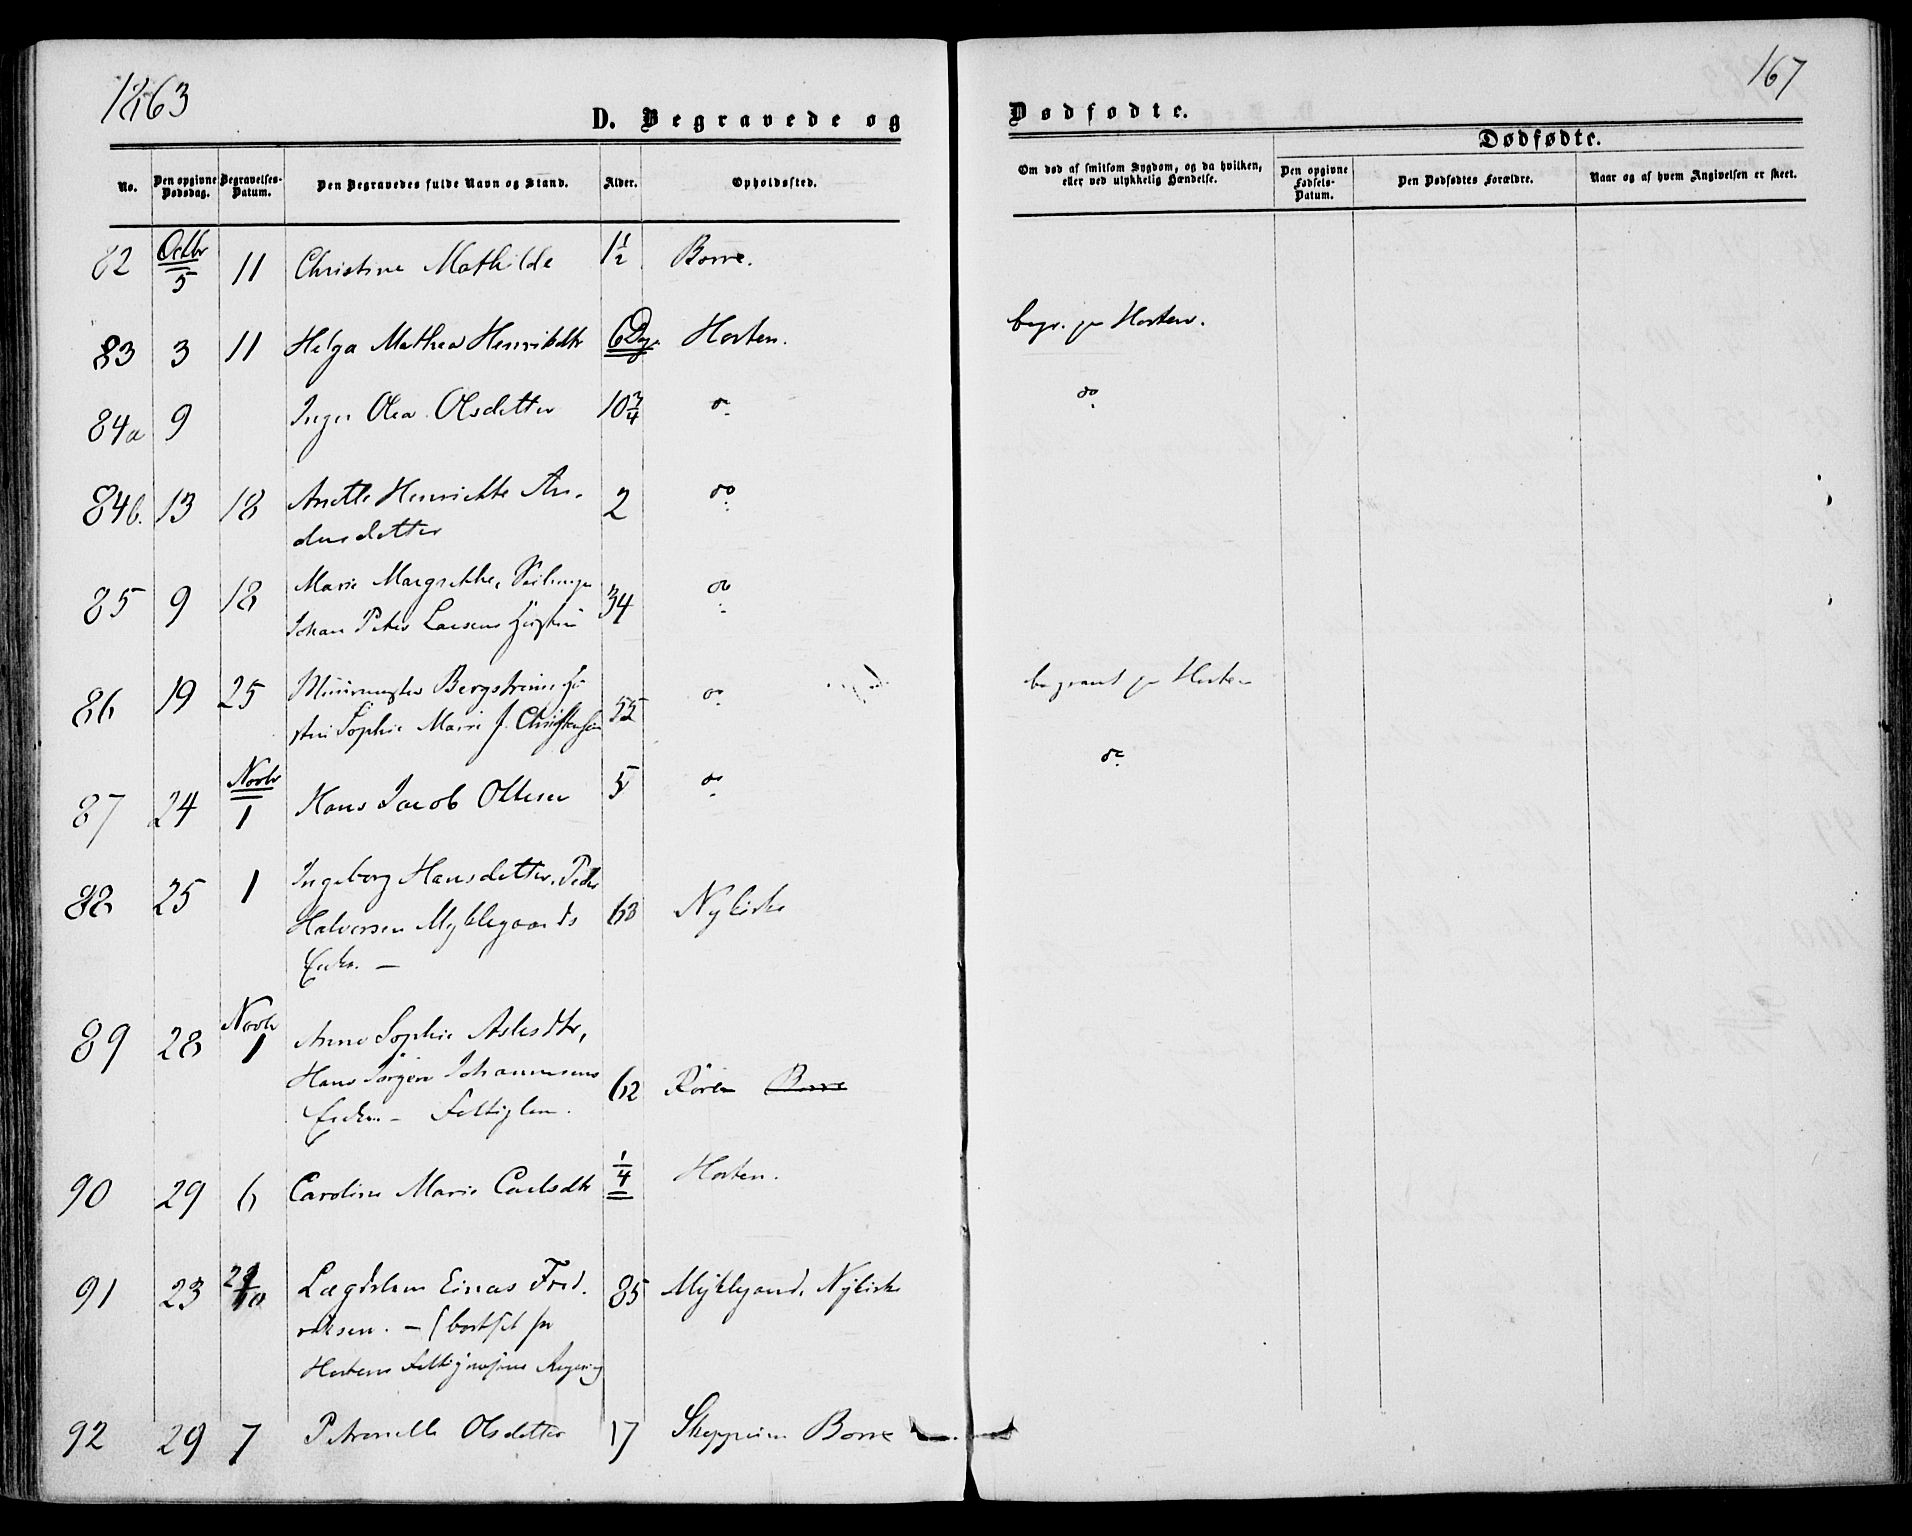 1863
167
D. Begravede og Dødfødte.
Dødfødte.
No.
Den opgivne Dødsdag.
Begravelses-Datum.
Den Begravedes fulde Navn og Stand.
Alder.
Opholdssted.
Om død af smitsom Sygdom, og da hvilken, eller ved ulykkelig Hændelse.
Den opgivne Fødsels-Datum.
Den Dødfødtes Forældre.
Naar og af hvem Angivelsen er skeet.
82 Octbr 5 11 Christine Mathilde 1½ Borre.
83 3 11 Helga Mathea Henriksdtr 6 Dage Horten. begr. pr Horten.
84a 9 Inger Olea Olsdatter 10¾ do do
84b. 13 18 Anette Henriette An-
dersdatter 2 do
85 9 18 Marie Margrethe,
Johan Peter Larsens Hustru 34 do
86 19 25 Bergstrøms Hu
stru Sophie Marie f. Christensen 55 do begravet pr Horten
87 24 Novbr 1 Hans Jacob Olsen 5 do do
88 25 1 Ingeborg Hansdatter, Peder
Halvorsen Myklegaards 63 Nykirke
Enke. —
89 28 Novbr 1 Anne Sophie Aslesdtr,
Hans Jørgen Johannesens 62 Røren Borre
Enke — Fattiglem.
90 29 6 Caroline Marie Carlsdtr ¼ Horten.
91 23 29/10 Lægdslem Einar Fred- 85 Myklegaard, Nykirke
riksen. — (bortsat for
Hortens Regning
92 29 7 Petronelle Olsdatter 17 Borre